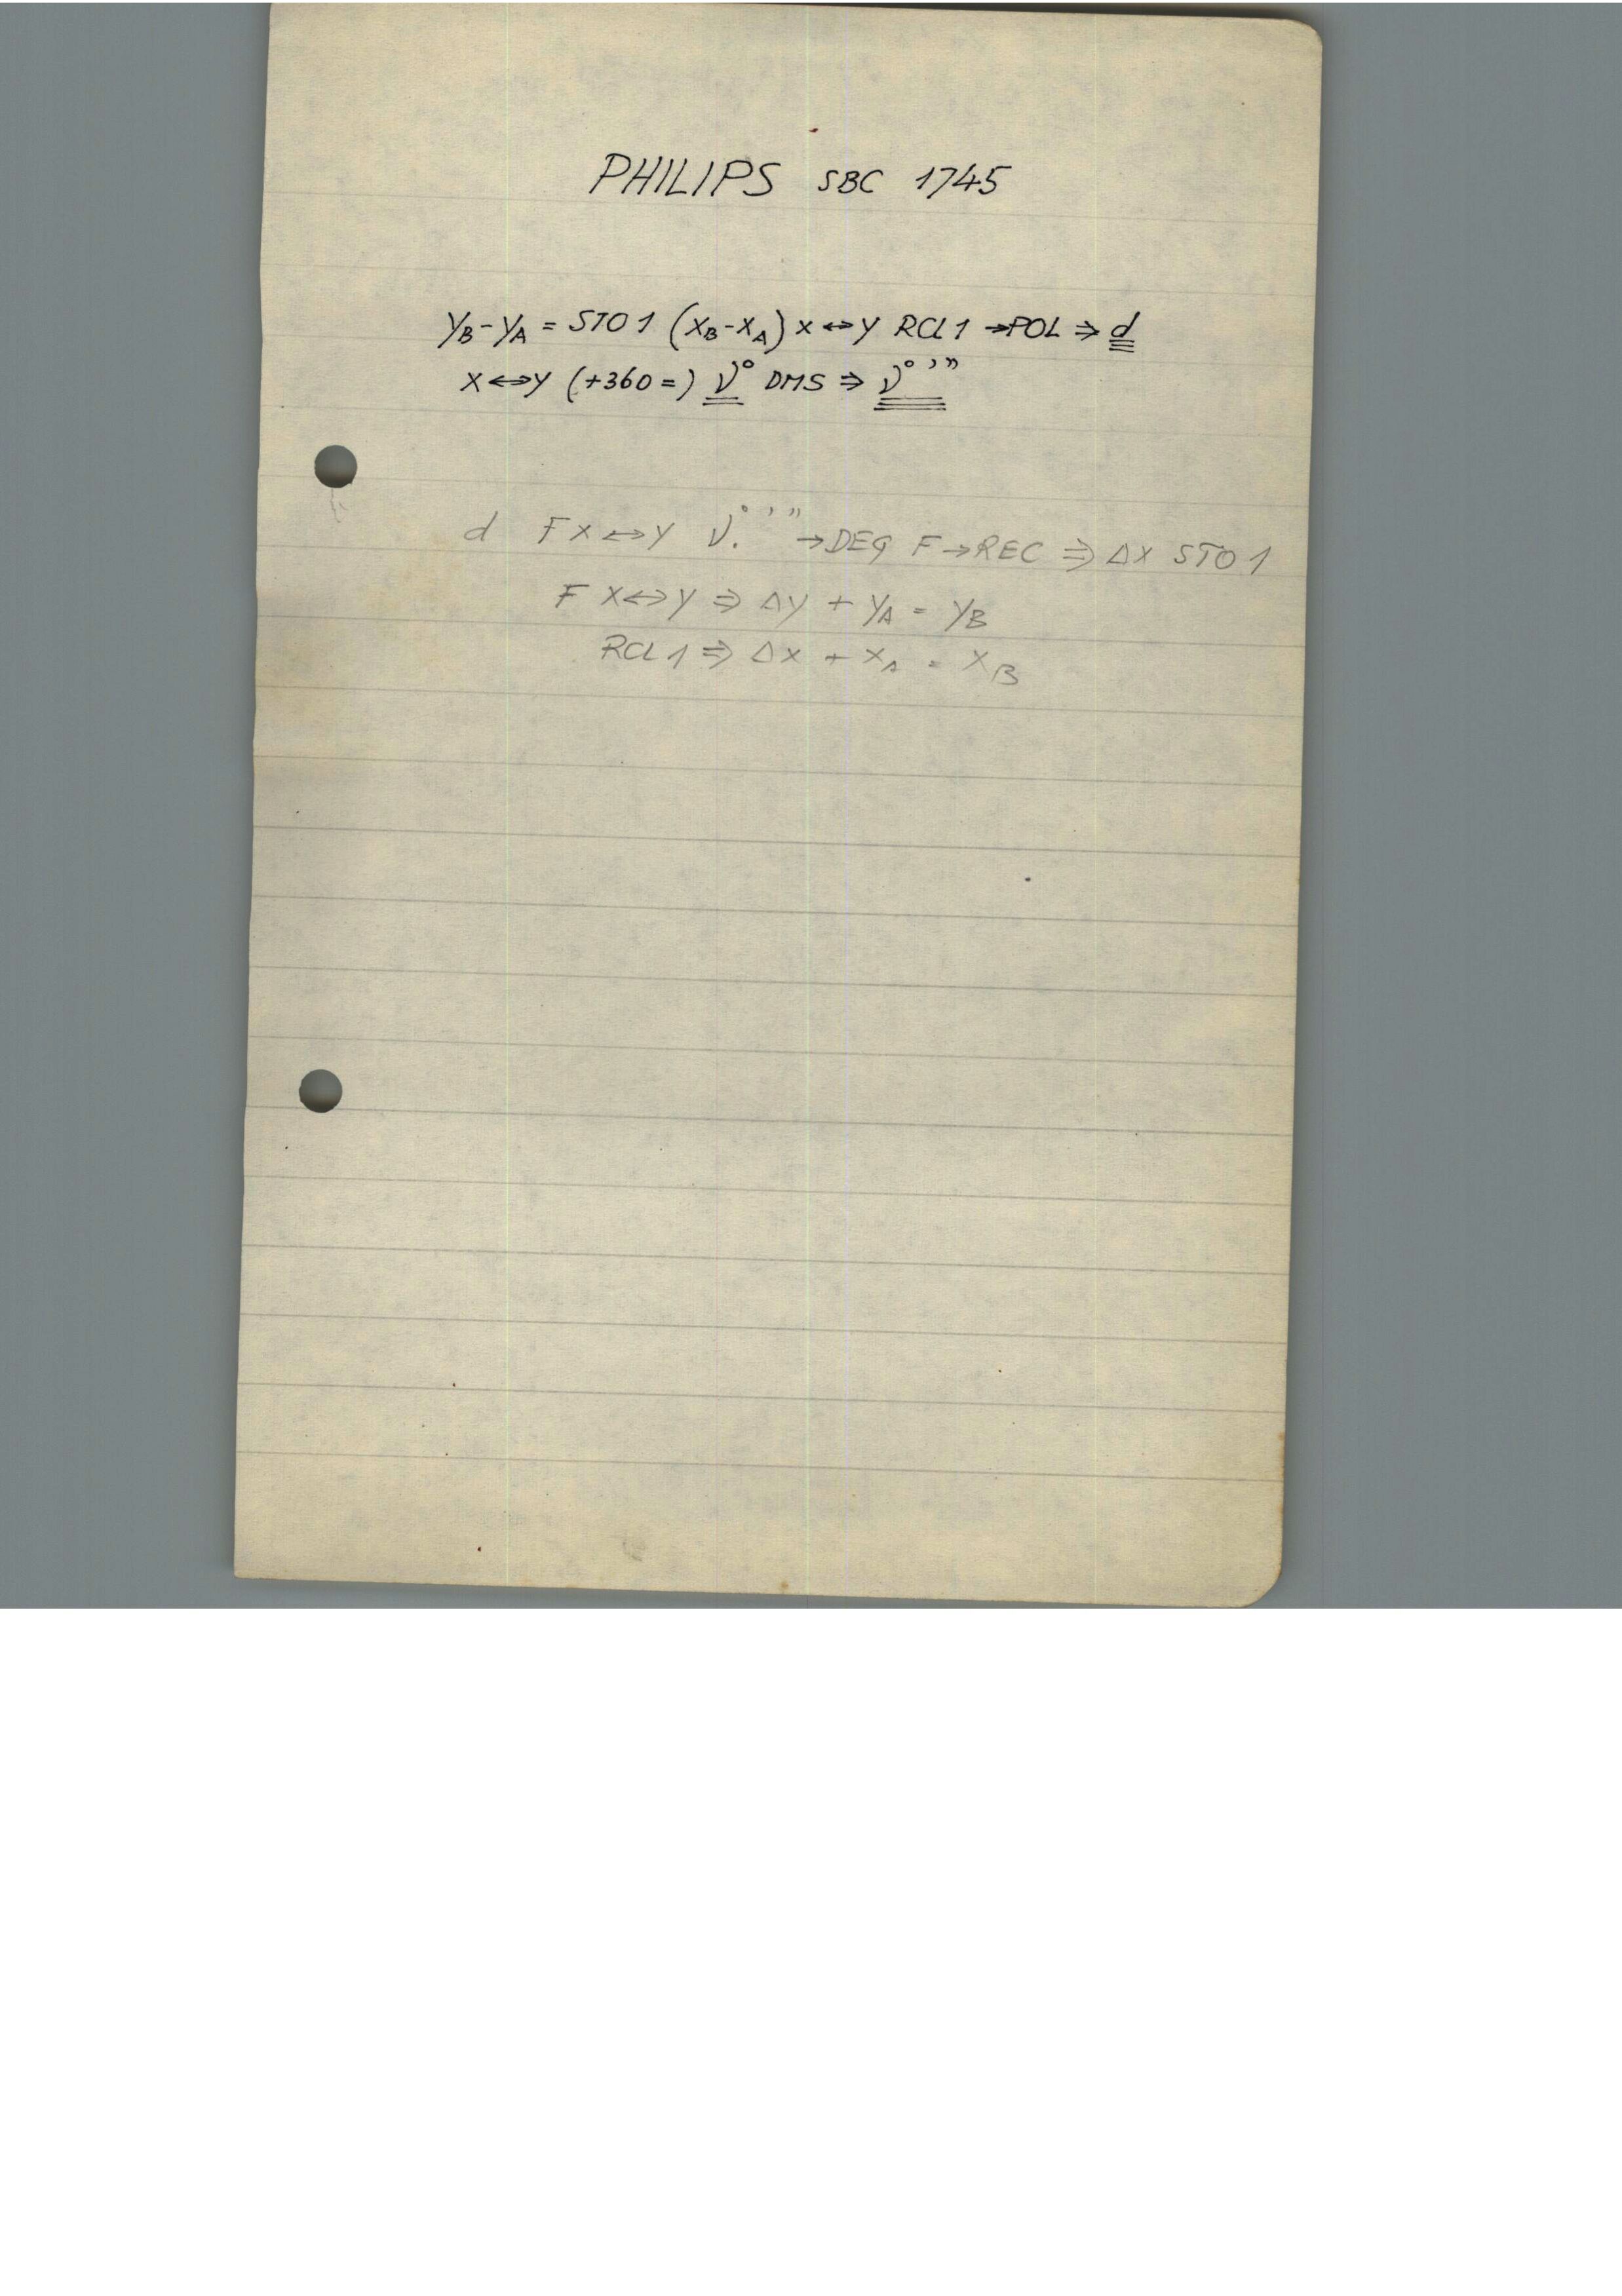 PHILIPS SBC 1745
yB-yA = STO 1 (xB-xA) x↔y RCL 1 →POL ⇒ d
x↔y (+360=) ν° DMS ⇒ ν° ' "
d F x↔y ν.° ' " →DEG F→REC ⇒ Δx STO 1
F x↔y ⇒ Δy + yA = yB
RCL 1 ⇒ Δx + xA = xB